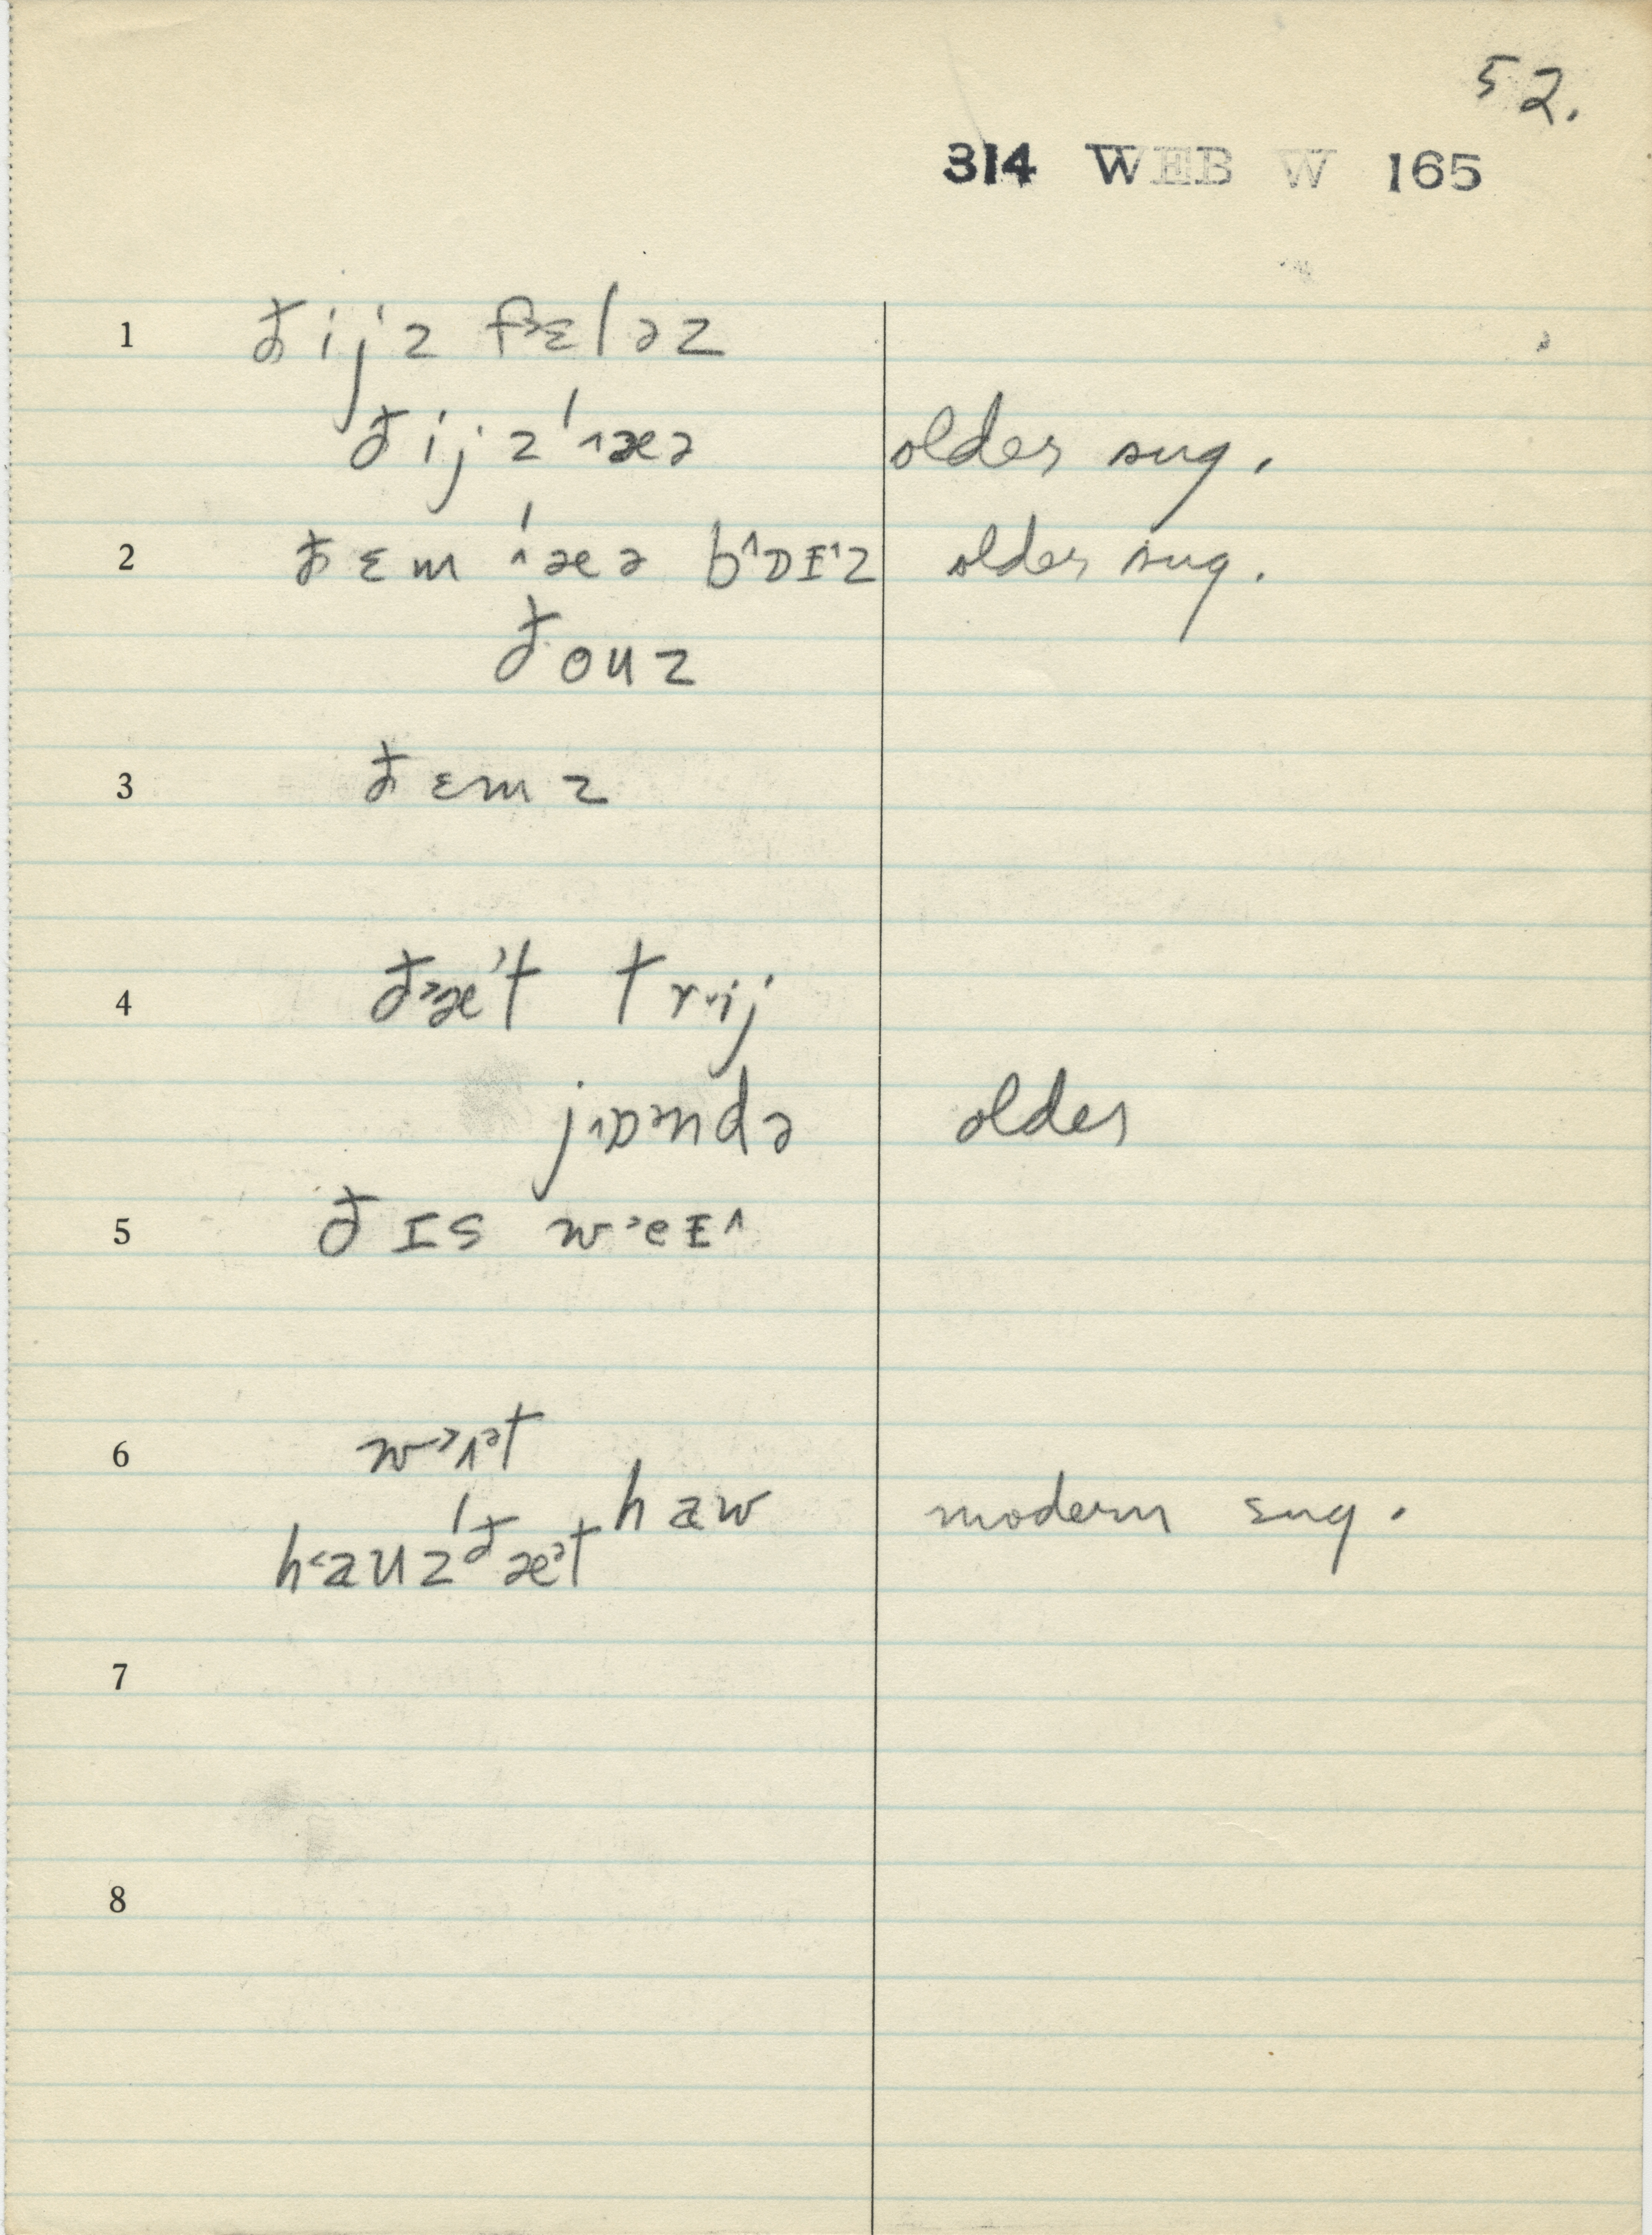 52.
314 WEB W 165
1 ðijz f˃ɛləz
ðijzˈ˄æə older sug.
2 ðɛm ˈ˄æə b˄ɒɪ˄z older sug.
ðouz
3 ðɛmz
4 ð˃æ˃t trv̌ij
j˄ɒ˃ndə older
5 ðɪs w˃eɪ˄
6 w˃ʌ˃t
haw modern sug.
h˂auzˈðæ˃t
7
8